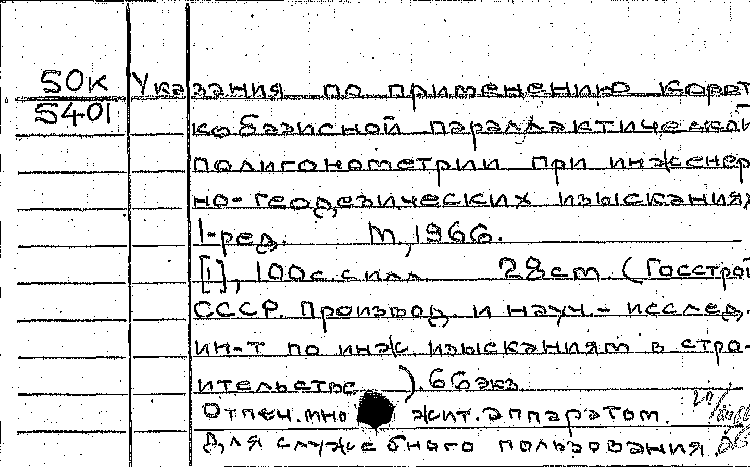 50к Указания по применению корот
5401
кобазисной параллактической
полигонометрии при инженер
но-геодезических изысканиях
1-ред. М., 1966.
[1], 100 с. с илл. 28 cm. (Госстрой
СССР. Производ. и науч.- исслед.
ин-т по инж. изысканиям в стро-
ительстве). 66 экз.
Отпеч. множит. аппаратом.
Для служебного пользования.